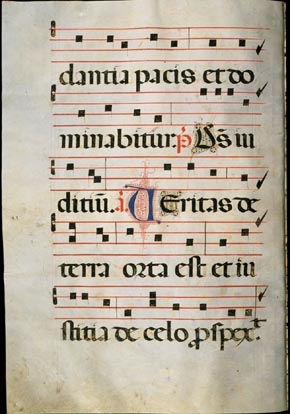 dantia pacis et do
minabitur. p̄ Ds̄ iu
diciū. a. UEritas de
terra orta est et iu
stitia de celo ꝓspex.ͭ